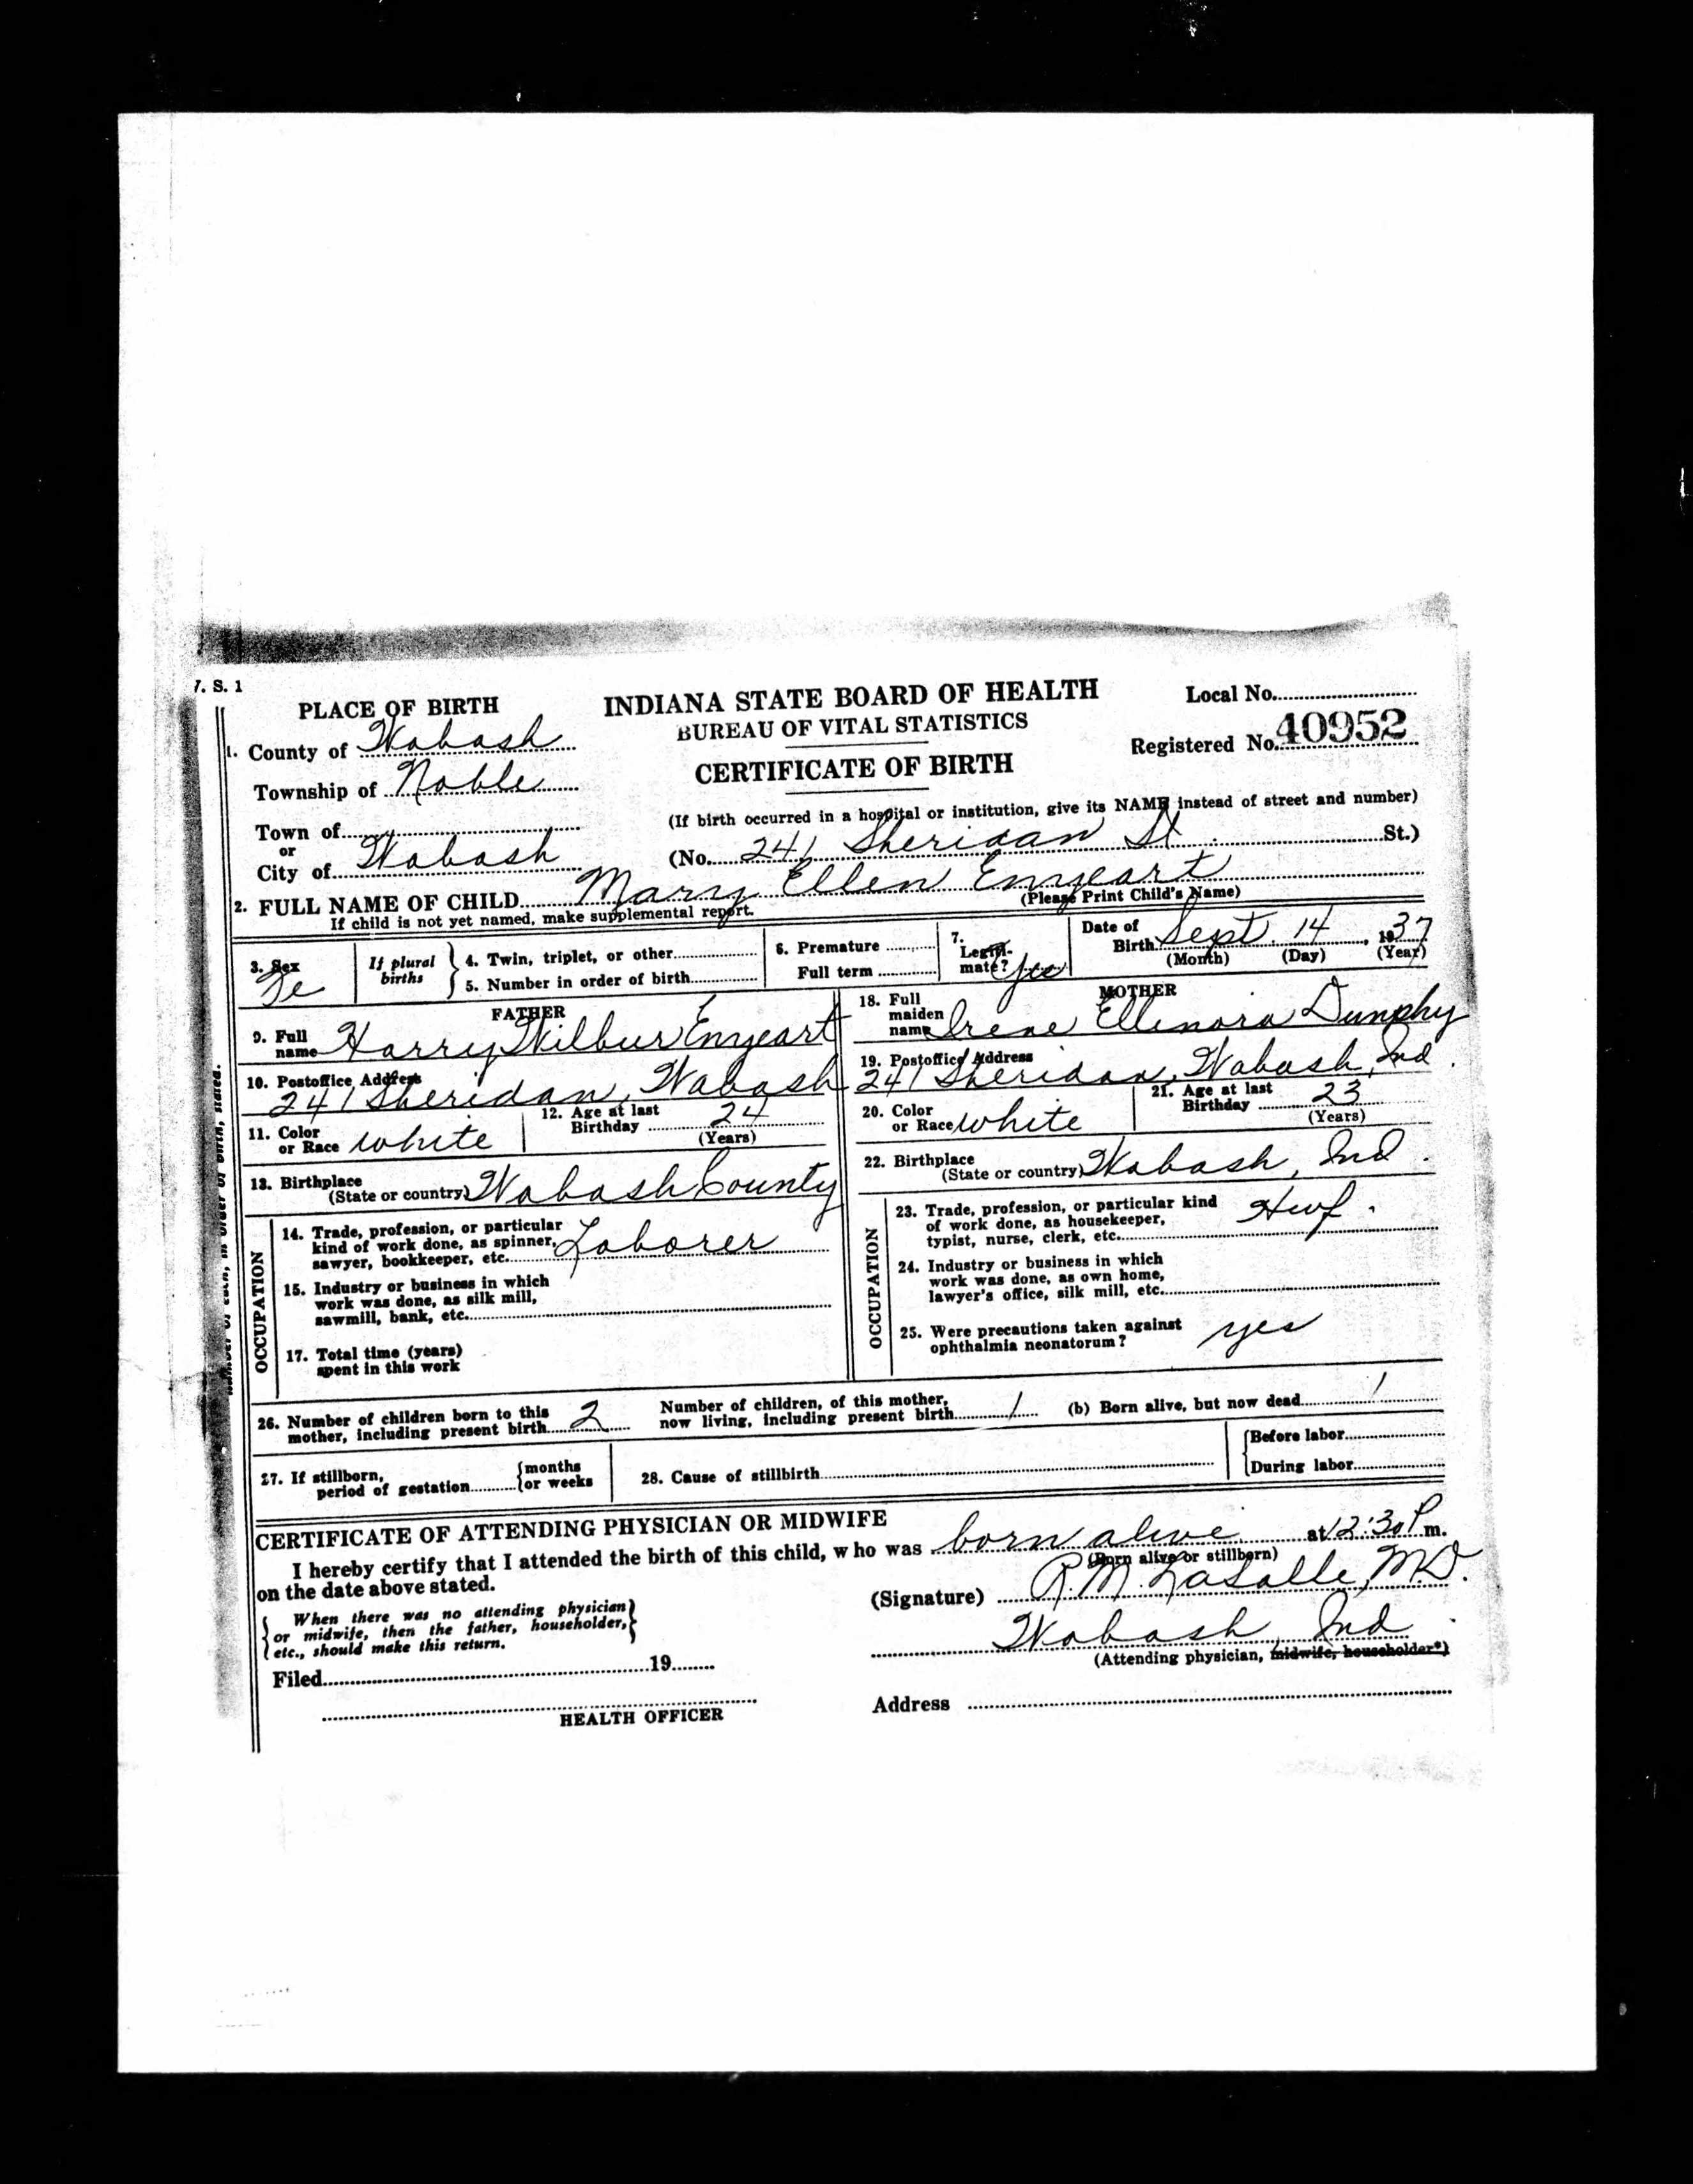 7. S. 1
PLACE OF BIRTH
INDIANA STATE BOARD OF HEALTH
BUREAU OF VITAL STATISTICS
CERTIFICATE OF BIRTH
Local No.
Registered No. 40952
1. County of Wabash
Township of Noble
Town of
or
City of Wabash
(If birth occurred in a hospital or institution, give its NAME instead of street and number)
(No. 241 Sheridan St. St.)
2. FULL NAME OF CHILD Mary Ellen Enyeart
(Please Print Child's Name)
If child is not yet named, make supplemental report.
3. Sex Fe
If plural births
4. Twin, triplet, or other
5. Number in order of birth
6. Premature
Full term
7. Legiti-mate? Yes
Date of Birth Sept. 14, 1937
(Month) (Day) (Year)
FATHER
9. Full name Harry Wilbur Enyeart
10. Postoffice Address
241 Sheridan, Wabash
11. Color or Race White
12. Age at last Birthday 24
(Years)
13. Birthplace
(State or country) Wabash County
OCCUPATION
14. Trade, profession, or particular
kind of work done, as spinner,
sawyer, bookkeeper, etc. Laborer
15. Industry or business in which
work was done, as silk mill,
sawmill, bank, etc.
17. Total time (years)
spent in this work
MOTHER
18. Full maiden name Irene Ellenora Dunphy
19. Postoffice Address
241 Sheridan, Wabash, Ind.
20. Color or Race White
21. Age at last Birthday 23
(Years)
22. Birthplace
(State or country) Wabash, Ind.
OCCUPATION
23. Trade, profession, or particular kind
of work done, as housekeeper,
typist, nurse, clerk, etc. Hwf.
24. Industry or business in which
work was done, as own home,
lawyer's office, silk mill, etc.
25. Were precautions taken against
ophthalmia neonatorum? yes
26. Number of children born to this
mother, including present birth 2
Number of children, of this mother,
now living, including present birth 1
(b) Born alive, but now dead 1
27. If stillborn,
period of gestation {months or weeks
28. Cause of stillbirth
{Before labor
{During labor
CERTIFICATE OF ATTENDING PHYSICIAN OR MIDWIFE
I hereby certify that I attended the birth of this child, who was born alive at 12:30 P m.
(Born alive or stillborn)
on the date above stated.
{When there was no attending physician
or midwife, then the father, householder,
etc., should make this return.}
(Signature) R. M. LaSalle, M.D.
Wabash, Ind
(Attending physician, midwife, householder*)
Filed 19
HEALTH OFFICER
Address